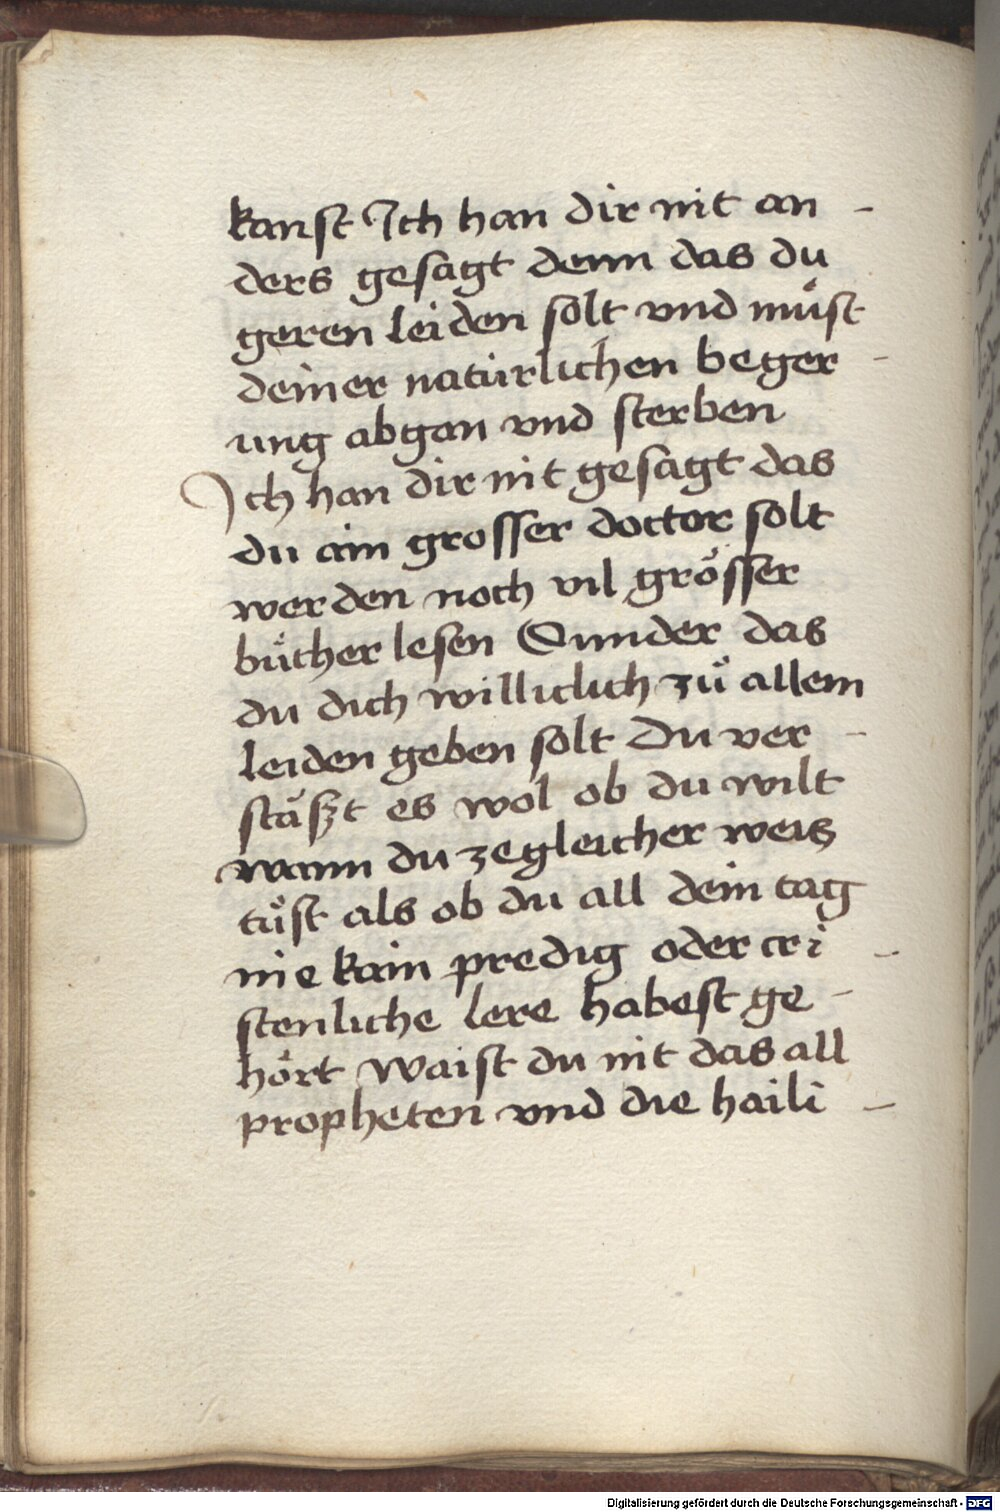 kanst Ich han dir nit an -
ders gesagt denn das du
geren leiden solt vnd muͦst
deiner naturlichen beger -
ung abgan vnd sterben
Ich han dir nit gesagt das
du ain grosser doctor solt
werden noch vil groͤsser
buͤcher lesen Sunder das
du dich williclich zuͦ allem
leiden geben solt Du ver -
staͤszt es wol ob du wilt
wann du ze gleicher weis
tuͦst als ob du all dein tag
nie kain predig oder cri -
stenliche lere habest ge -
hoͤrt Waist du nit das all
propheten vnd die haili -
Digitalisierung gefördert durch die Deutsche Forschungsgemeinschaft - DFG